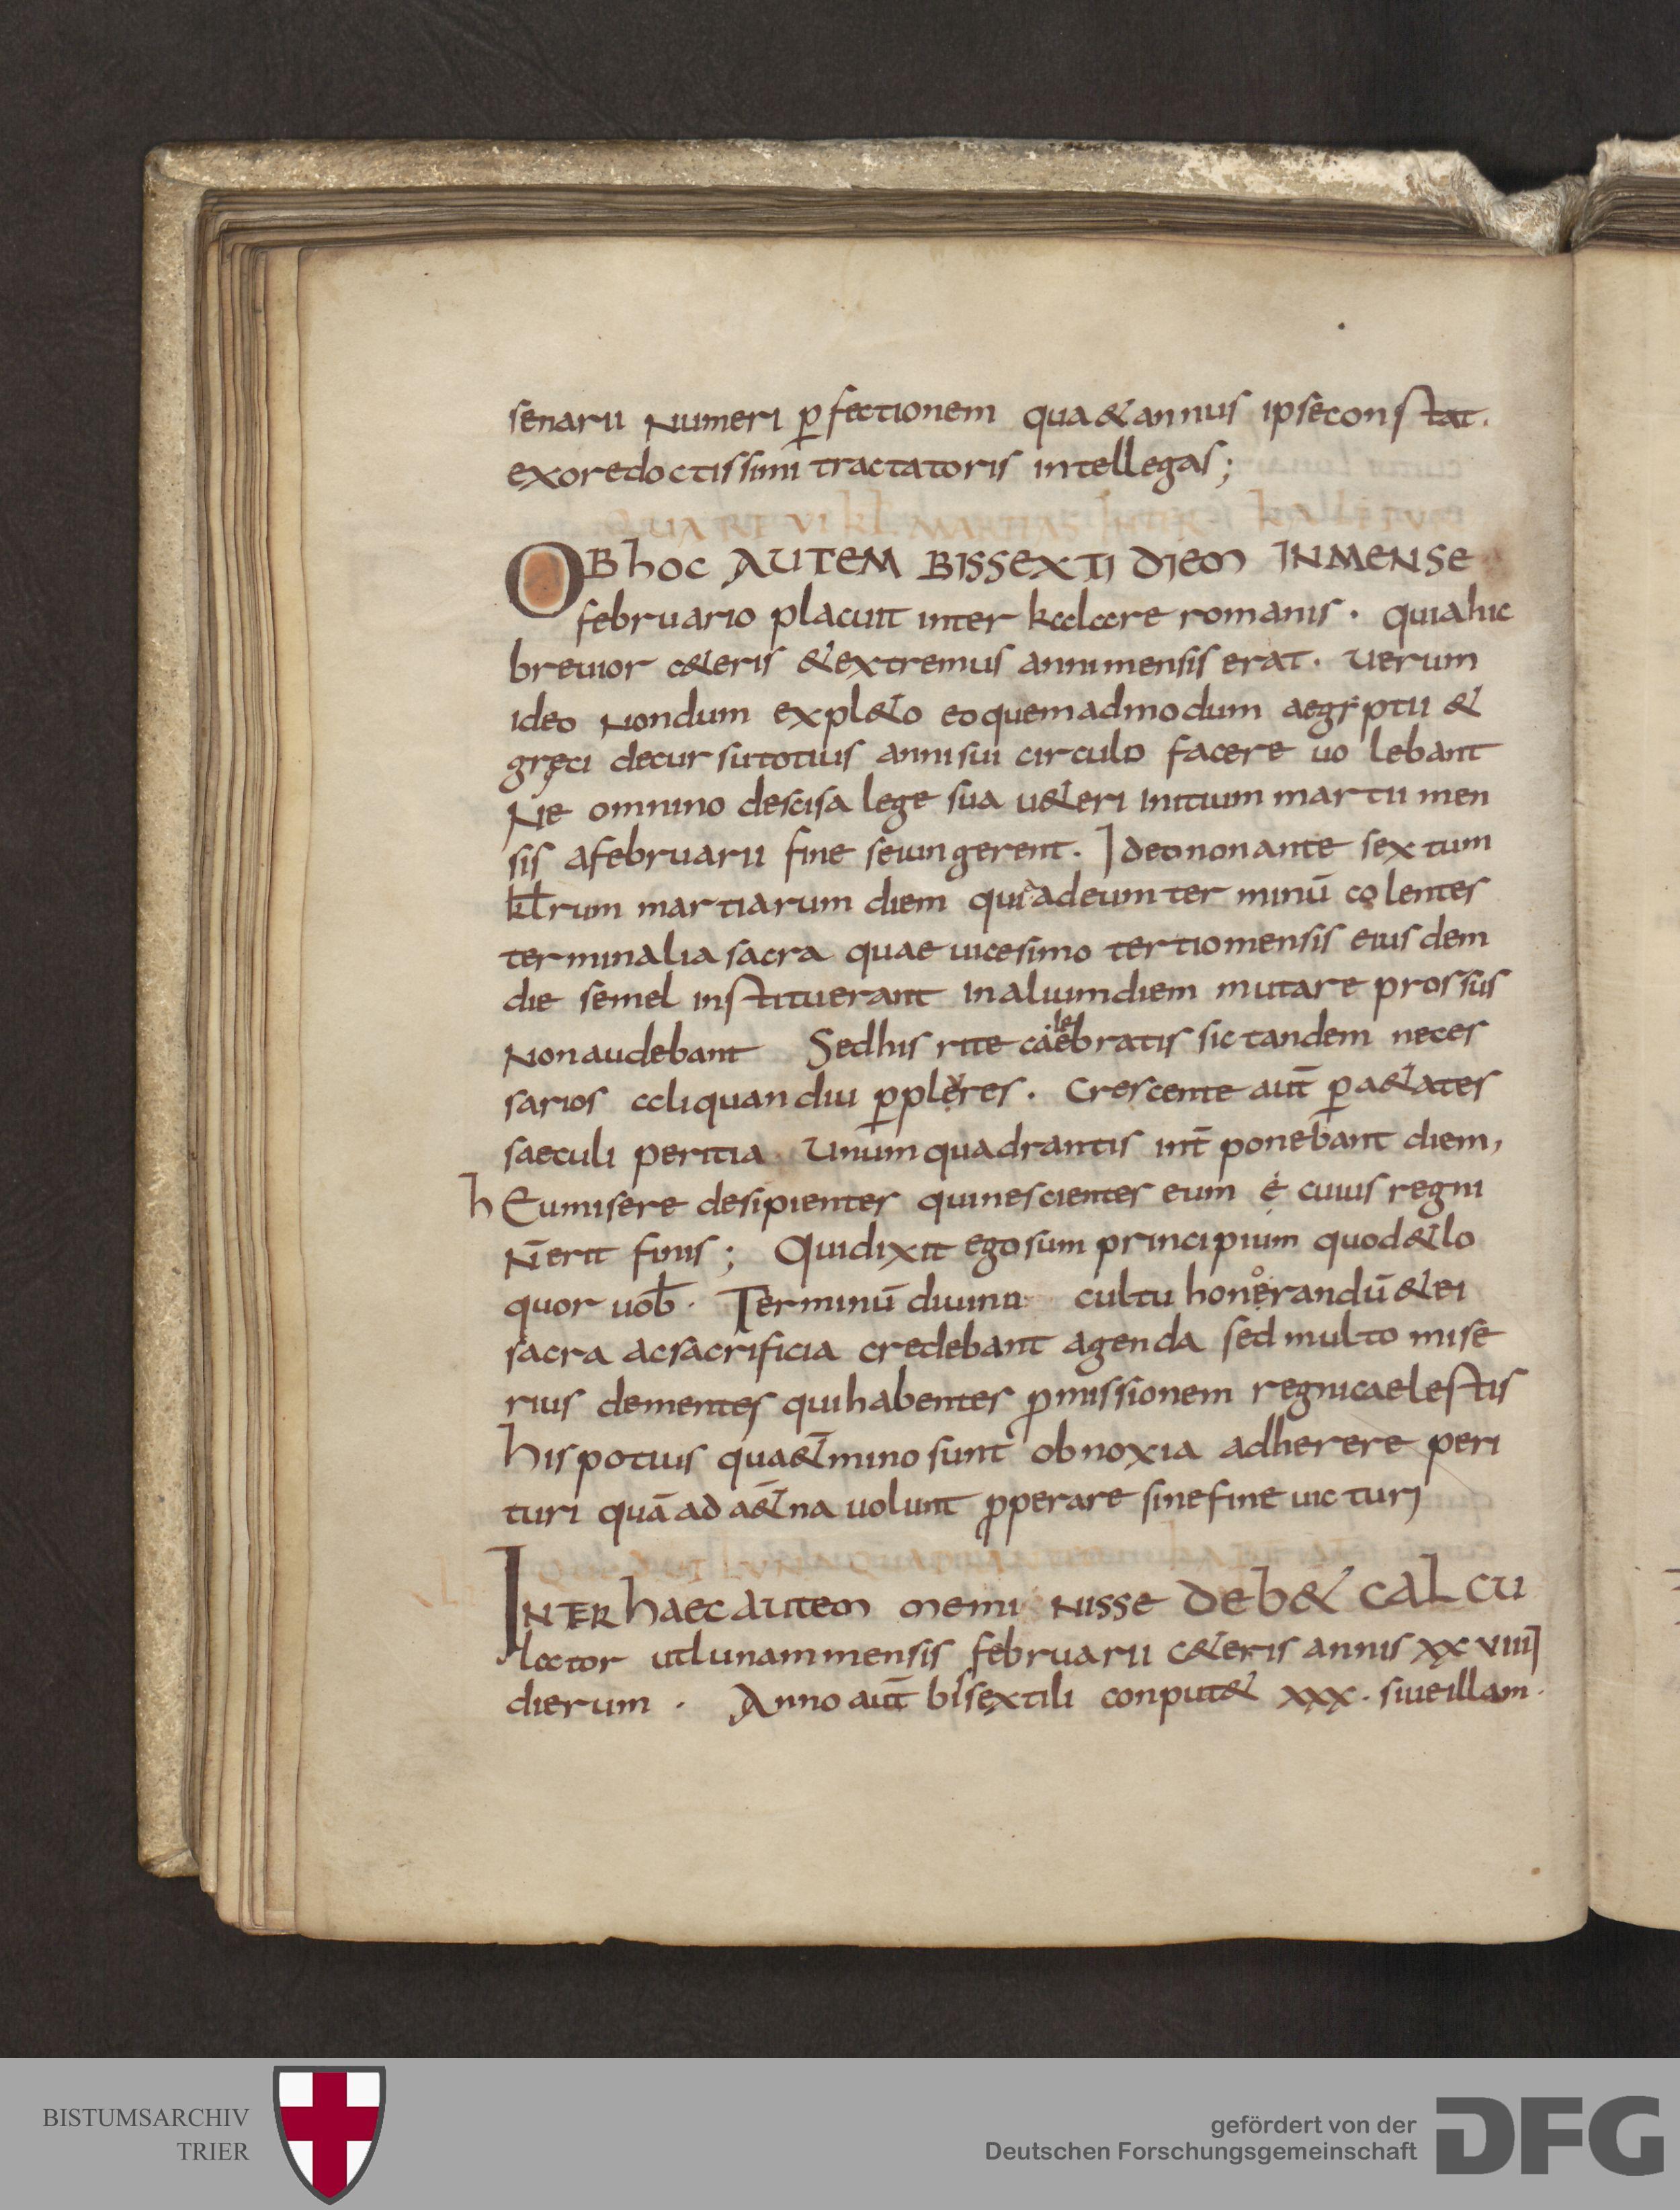 senarii numeri ꝑfectionem qua & annus ipse constat.
ex ore doctissimi tractatoris intellegas;
QUARE VI kł MARTIAS INTER kALE
OB hoc AUTEM BISSEXTI DIEM IN MENSE
februario placuit inter kalare romanis. quia hic
breuior c&eris & extremus anni mensis erat. uerum
ideo nondum expl&o eo quem ad modum aegiptii &
gręci decursu totius anni sui circulo facere uolebant
Ne omnino descisa lege sua u&eri initium martii men
sis a februarii fine seiungerent. Ideo non ante sextum
kłrum martiarum diem quia ad eum terminū colentes
terminalia sacra quae uicesimo tertio mensis eiusdem
die semel instituerant in alium diem mutare prossus
Non audebant Sed his rite caelebratis sic tandem neces
sarios aliquandiu ꝑ plures. Crescente aut̄ ꝑ a&ates
saeculi peritia unum quadrantis int̄ponebant diem,
hEu misere desipientes qui nescientes eum ė cuius regni
N̄ erit finis; Qui dixit ego sum principium quod & lo
quor uob̄. Terminū diuino cultu honorandū & ei
sacra ac sacrificia credebant agenda sed multo mise
rius dementes qui habentes ꝓmissionem regni caelestis
his potius quae t̄mino sunt obnoxia adherere peri
turi quā ad a&̄na uolunt ꝓperare sine fine uicturi
INTER haec autem memiNisse deb& CALCU
lator ut lunam mensis februarii c&eris annis xxviiii
dierum. Anno aut̄ bisextili conput& xxx. siue illam.
BISTUMSARCHIV
TRIER
gefördert von der
Deutschen Forschungsgemeinschaft
DFG